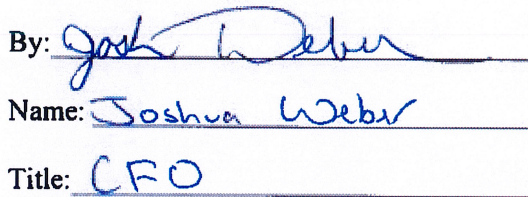 By: Josh Weber
Name: Joshua Weber
Title: CFO